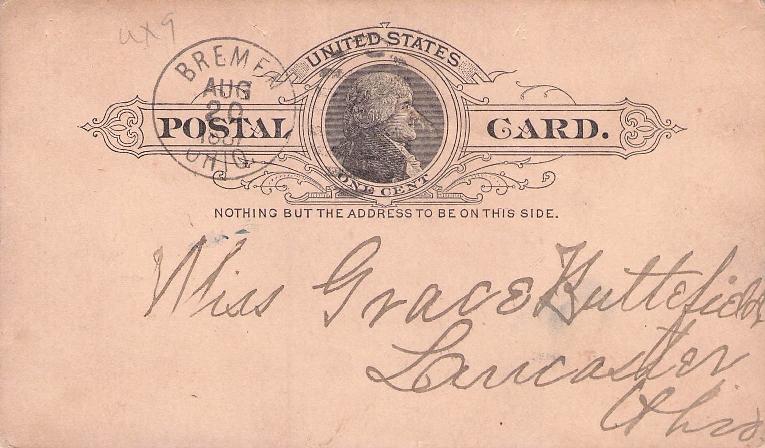 ux9
UNITED STATES
BREMEN
AUG
20
1887
OHIO.
POSTAL CARD.
ONE CENT
NOTHING BUT THE ADDRESS TO BE ON THIS SIDE.
Miss Grace Buttefield
Lancaster
Ohio.